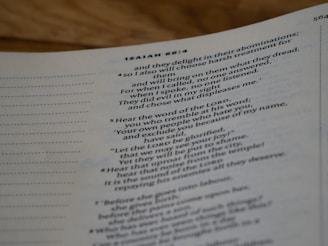 564
ISAIAH 66:4
and they delight in their abominations;
4 so I also will choose harsh treatment for
them
and will bring on them what they dread.
For when I called, no one answered,
when I spoke, no one listened.
They did evil in my sight
and chose what displeases me.
5 Hear the word of the LORD,
you who tremble at his word:
'Your own people who hate you,
and exclude you because of my name,
have said,
"Let the LORD be glorified,
that we may see your joy!"
Yet they will be put to shame.
6 Hear that uproar from the city,
hear that noise from the temple!
It is the sound of the LORD
repaying his enemies all they deserve.
7 'Before she goes into labour,
she gives birth;
before the pains come upon her,
she delivers a son.
8 Who has ever heard of such things?
Who has ever seen things like this?